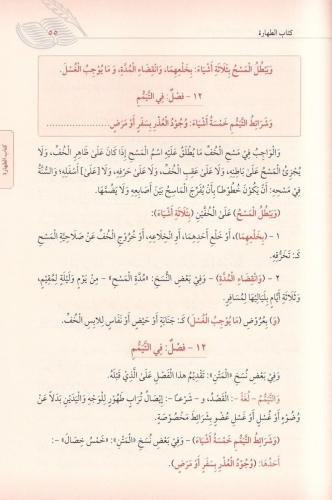 كتاب الطهارة
٥٥
وَيَبْطُلُ الْمَسْحُ بِثَلَاثَةِ أَشْيَاءَ: بِخَلْعِهِمَا، وَانْقِضَاءِ الْمُدَّةِ، وَمَا يُوجِبُ الْغُسْلَ.
١٢ - فَصْلٌ: فِي التَّيَمُّمِ
وَشَرَائِطُ التَّيَمُّمِ خَمْسَةُ أَشْيَاءَ: وُجُودُ الْعُذْرِ بِسَفَرٍ أَوْ مَرَضٍ
وَالْوَاجِبُ فِي مَسْحِ الْخُفِّ مَا يُطْلَقُ عَلَيْهِ اسْمُ الْمَسْحِ إِذَا كَانَ عَلَىٰ ظَاهِرِ الْخُفِّ، وَلَا
يُجْزِئُ الْمَسْحُ عَلَىٰ بَاطِنِهِ، وَلَا عَلَىٰ عَقِبِ الْخُفِّ، وَلَا عَلَىٰ حَرْفِهِ، وَلَا [عَلَىٰ] أَسْفَلِهِ، وَالسُّنَّةُ
فِي مَسْحِهِ: أَنْ يَكُونَ خُطُوطًا بِأَنْ يُفَرِّجَ الْمَاسِحُ بَيْنَ أَصَابِعِهِ وَلَا يَضُمَّهَا.
(وَيَبْطُلُ الْمَسْحُ) عَلَىٰ الْخُفَّيْنِ (بِثَلَاثَةِ أَشْيَاءَ):
١ - (بِخَلْعِهِمَا)، أَوْ خَلْعِ أَحَدِهِمَا، أَوِ انْخِلَاعِهِ، أَوْ خُرُوجِ الْخُفِّ عَنْ صَلَاحِيَّةِ الْمَسْحِ
كَـ: تَخَرُّقِهِ.
٢ - (وَانْقِضَاءِ الْمُدَّةِ) - وَفِي بَعْضِ النُّسَخِ: «مُدَّةِ الْمَسْحِ» - مِنْ يَوْمٍ وَلَيْلَةٍ لِمُقِيمٍ،
وَثَلَاثَةِ أَيَّامٍ بِلَيَالِيهَا لِمُسَافِرٍ.
(وَ) بِعُرُوضِ (مَا يُوجِبُ الْغُسْلَ) كَـ: جَنَابَةٍ أَوْ حَيْضٍ أَوْ نِفَاسٍ لِلَابِسِ الْخُفِّ.
١٢ - فَصْلٌ: فِي التَّيَمُّمِ
وَفِي بَعْضِ نُسَخِ «الْمَتْنِ»: تَقْدِيمُ هٰذَا الْفَصْلِ عَلَىٰ الَّذِي قَبْلَهُ.
وَالتَّيَمُّمُ - لُغَةً -: الْقَصْدُ، وَ - شَرْعًا -: إِيصَالُ تُرَابٍ طَهُورٍ لِلْوَجْهِ وَالْيَدَيْنِ بَدَلًا عَنْ
وُضُوءٍ أَوْ غُسْلٍ أَوْ غَسْلِ عُضْوٍ بِشَرَائِطَ مَخْصُوصَةٍ.
(وَشَرَائِطُ التَّيَمُّمِ خَمْسَةُ أَشْيَاءَ) - وَفِي بَعْضِ نُسَخِ «الْمَتْنِ»: «خَمْسُ خِصَالٍ» -:
أَحَدُهَا: (وُجُودُ الْعُذْرِ بِسَفَرٍ أَوْ مَرَضٍ)
كتاب الطهارة